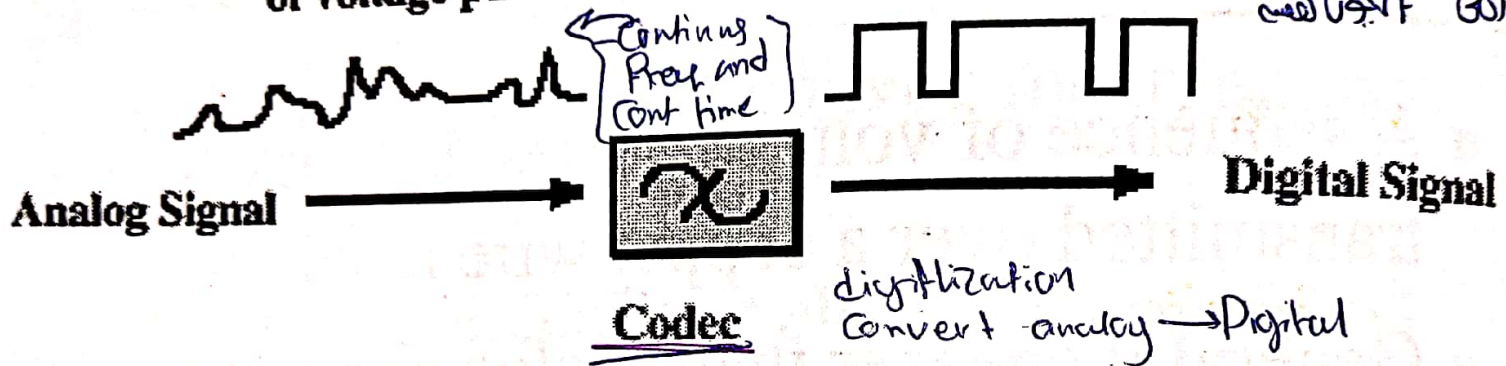 of voltage p
Continus
Freq and
Cont time
Analog Signal
Digital Signal
Codec
digitlization
Convert analog → Digital